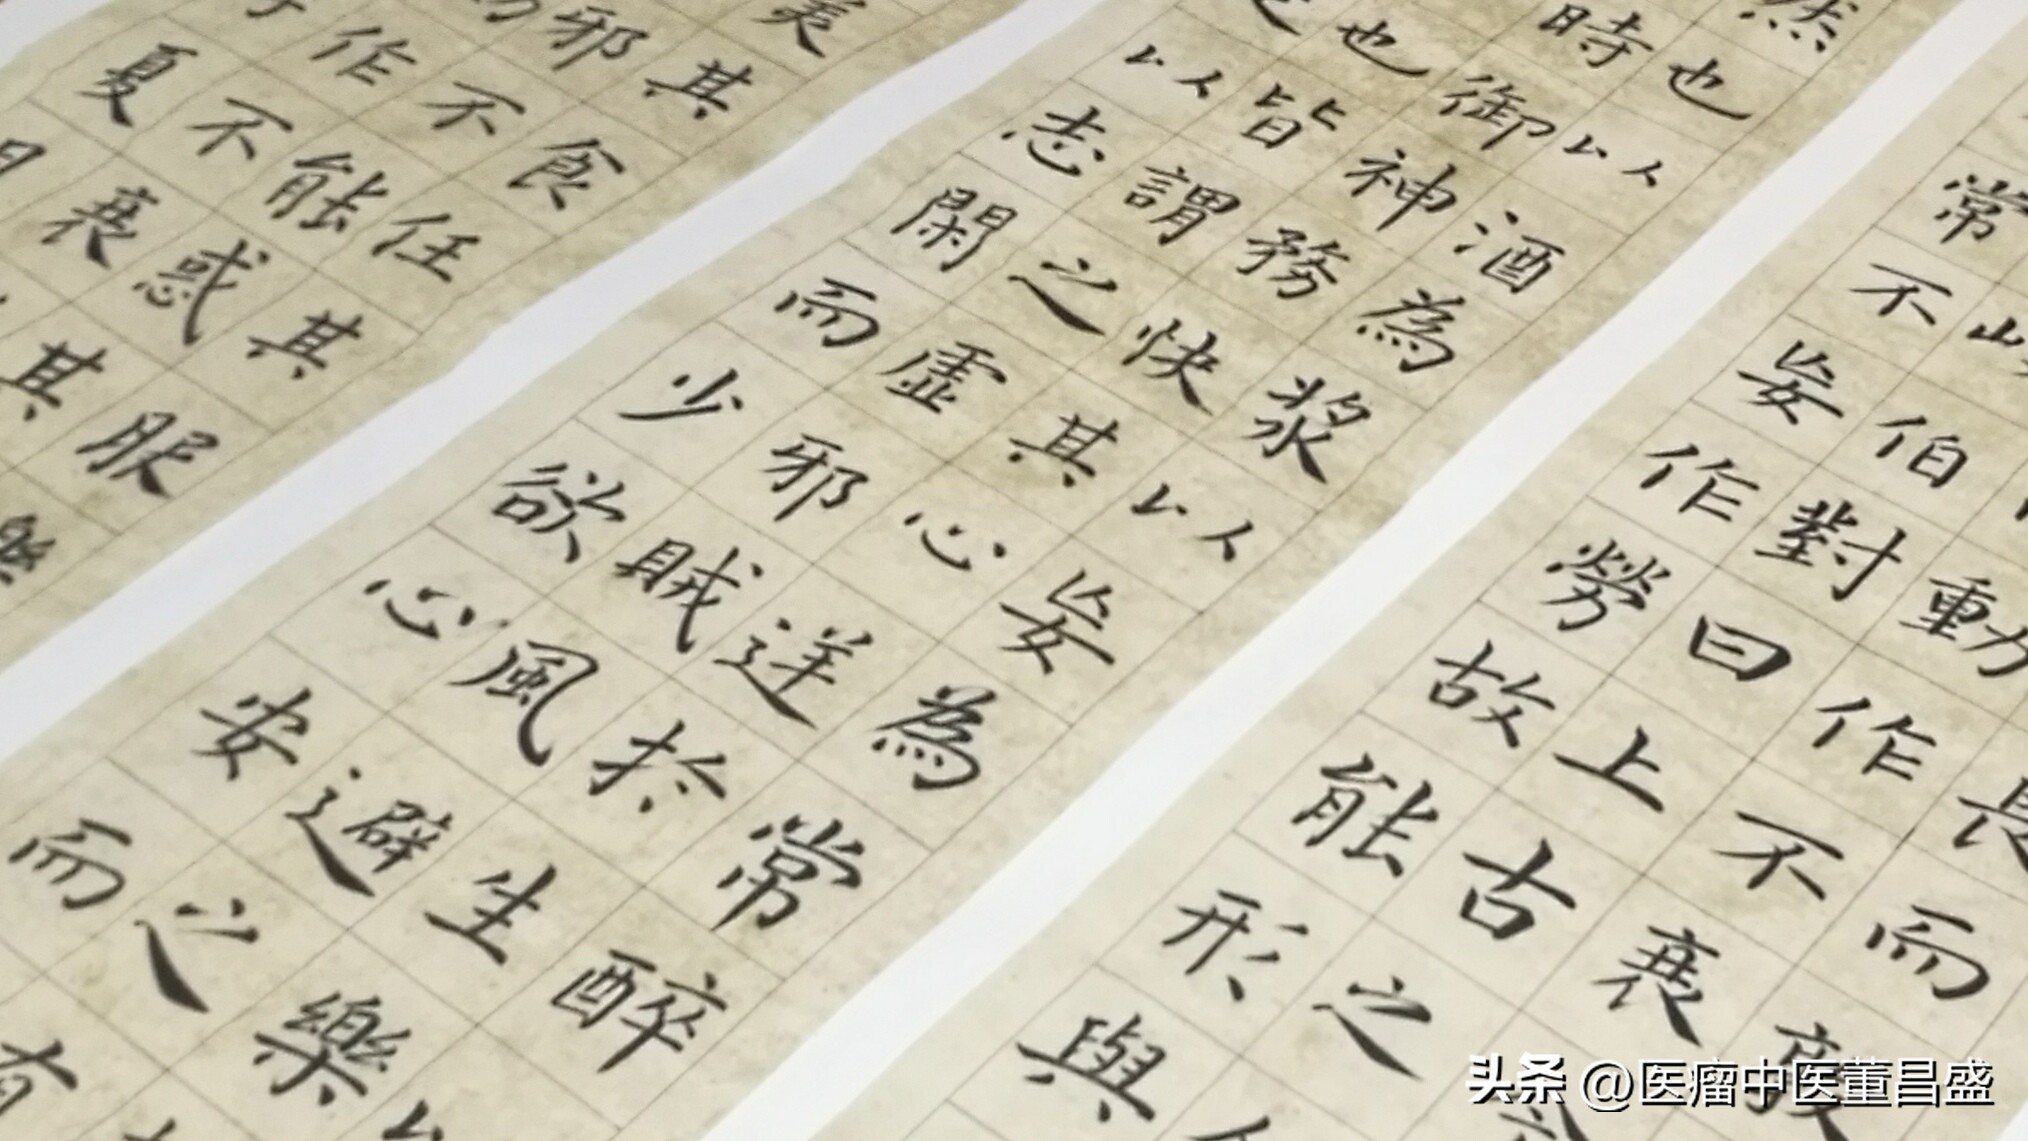 長而
動作不衰
岐伯對曰上古之人
常不妄作勞故能形與
然也以酒為漿以妄為常醉
時御神務快其心逆於生樂以
也皆謂之虛邪賊風避之有
是以志閑而少欲心安而
美其食任其服樂
邪不能惑其
作不衰
头条 @医瘤中医董昌盛